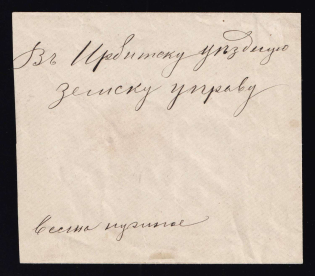 Въ Ирбитску уѣздную
земску управу
весьма нужное